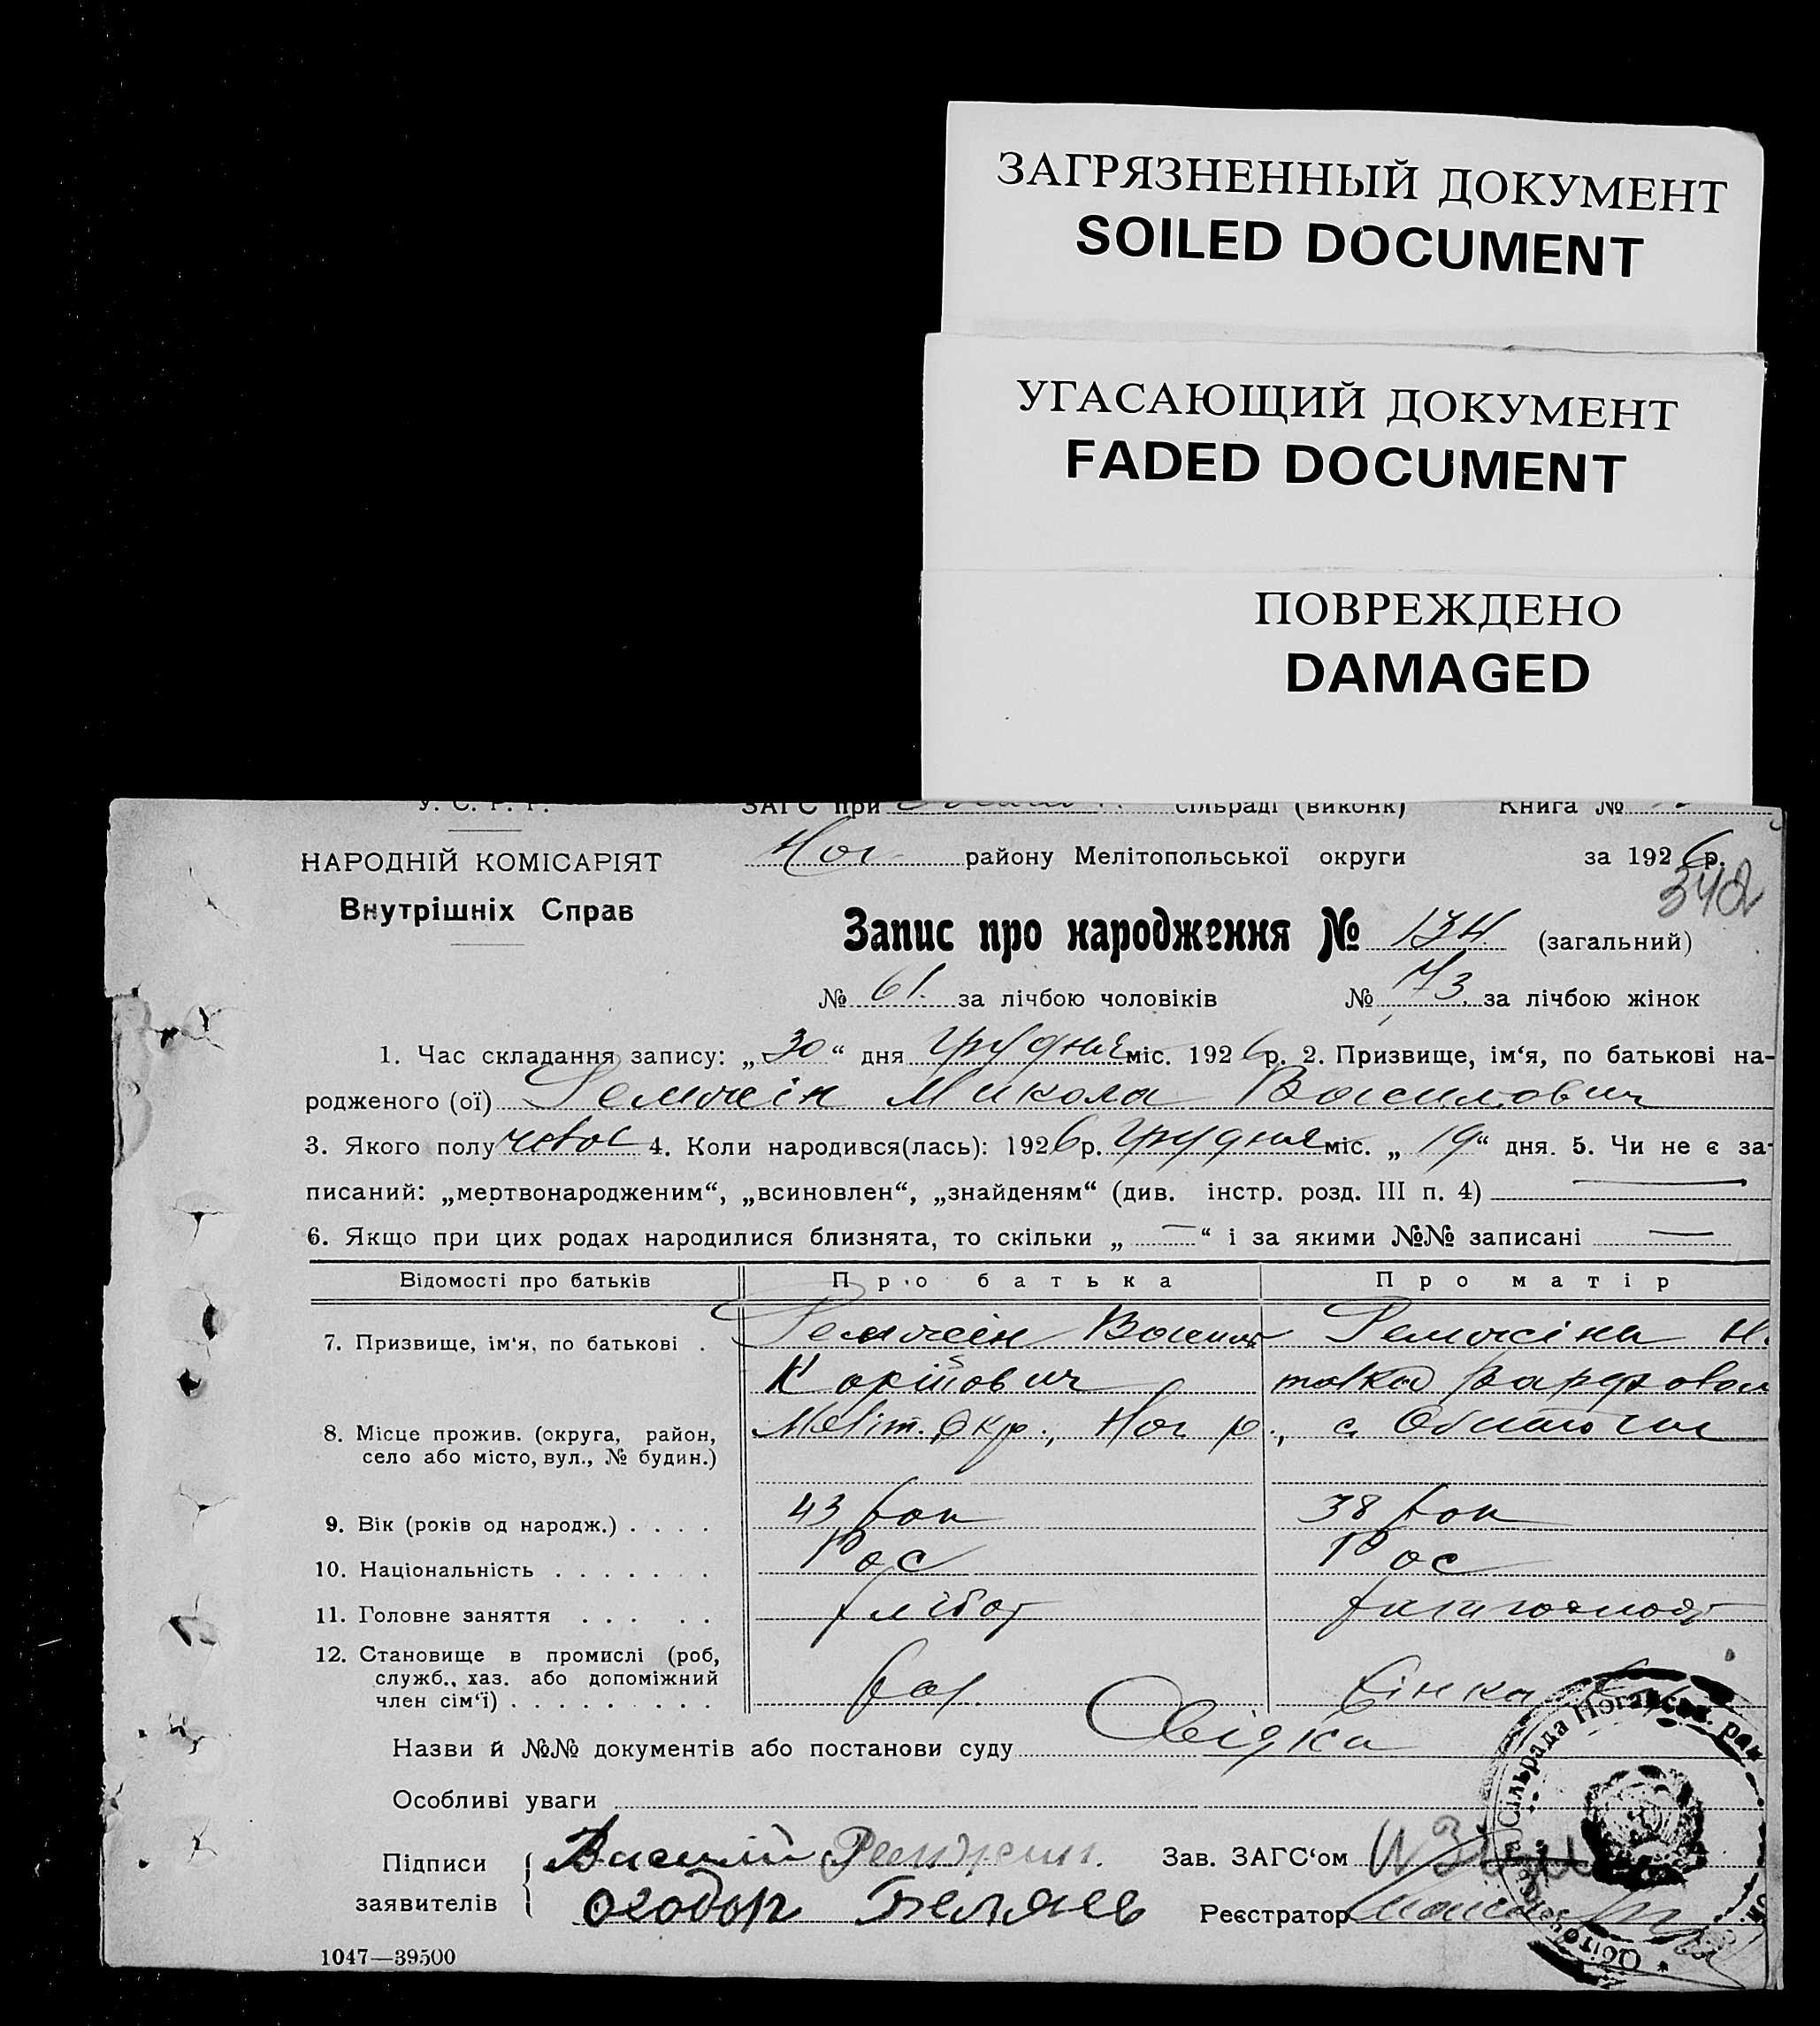 ЗАГРЯЗНЕННЫЙ ДОКУМЕНТ
SOILED DOCUMENT
УГАСАЮЩИЙ ДОКУМЕНТ
FADED DOCUMENT
ПОВРЕЖДЕНО
DAMAGED
У. С. Р. Р. ЗАГС при сільраді (виконк) Книга №
НАРОДНІЙ КОМІСАРІЯТ
Внутрішніх Справ
Ног району Мелітопольської округи за 1926 р.
342
Запис про народження № 134 (загальний)
№ 61. за лічбою чоловіків № 73. за лічбою жінок
1. Час складання запису: „30“ дня Грудня міс. 1926 р. 2. Призвище, ім‘я, по батькові на-
родженого (ої) Ремжін Микола Василович
3. Якого полу 4. Коли народився(лась): 1926 р. Грудня міс. „19“ дня. 5. Чи не є за-
писаний: „мертвонародженим“, „всиновлен“, „знайденям“ (див. інстр. розд. III п. 4) —
6. Якщо при цих родах народилися близнята, то скільки „—“ і за якими №№ записані —
Відомості про батьків Про батька Про матір
7. Призвище, ім‘я, по батькові . Ремжін Васил Ремжіна Н.
8. Місце прожив. (округа, район, Меліт. Окр., Ног р., с.
село або місто, вул., № будин.)
9. Вік (років од народж.) . . . . 43 рок 38 рок
10. Національність . . . . . . . Рос Рос
11. Головне заняття . . . . . хлібор
12. Становище в промислі (роб,
служб., хаз. або допоміжний
член сім‘ї) . . . . . . . . . хаз. жінка
Назви й №№ документів або постанови суду Свідка
Особливі уваги
Підписи Василий Ремжин. Зав. ЗАГС‘ом
заявителів Беляев Реєстратор
Сільрада Ногайськ. рай
1047—39500